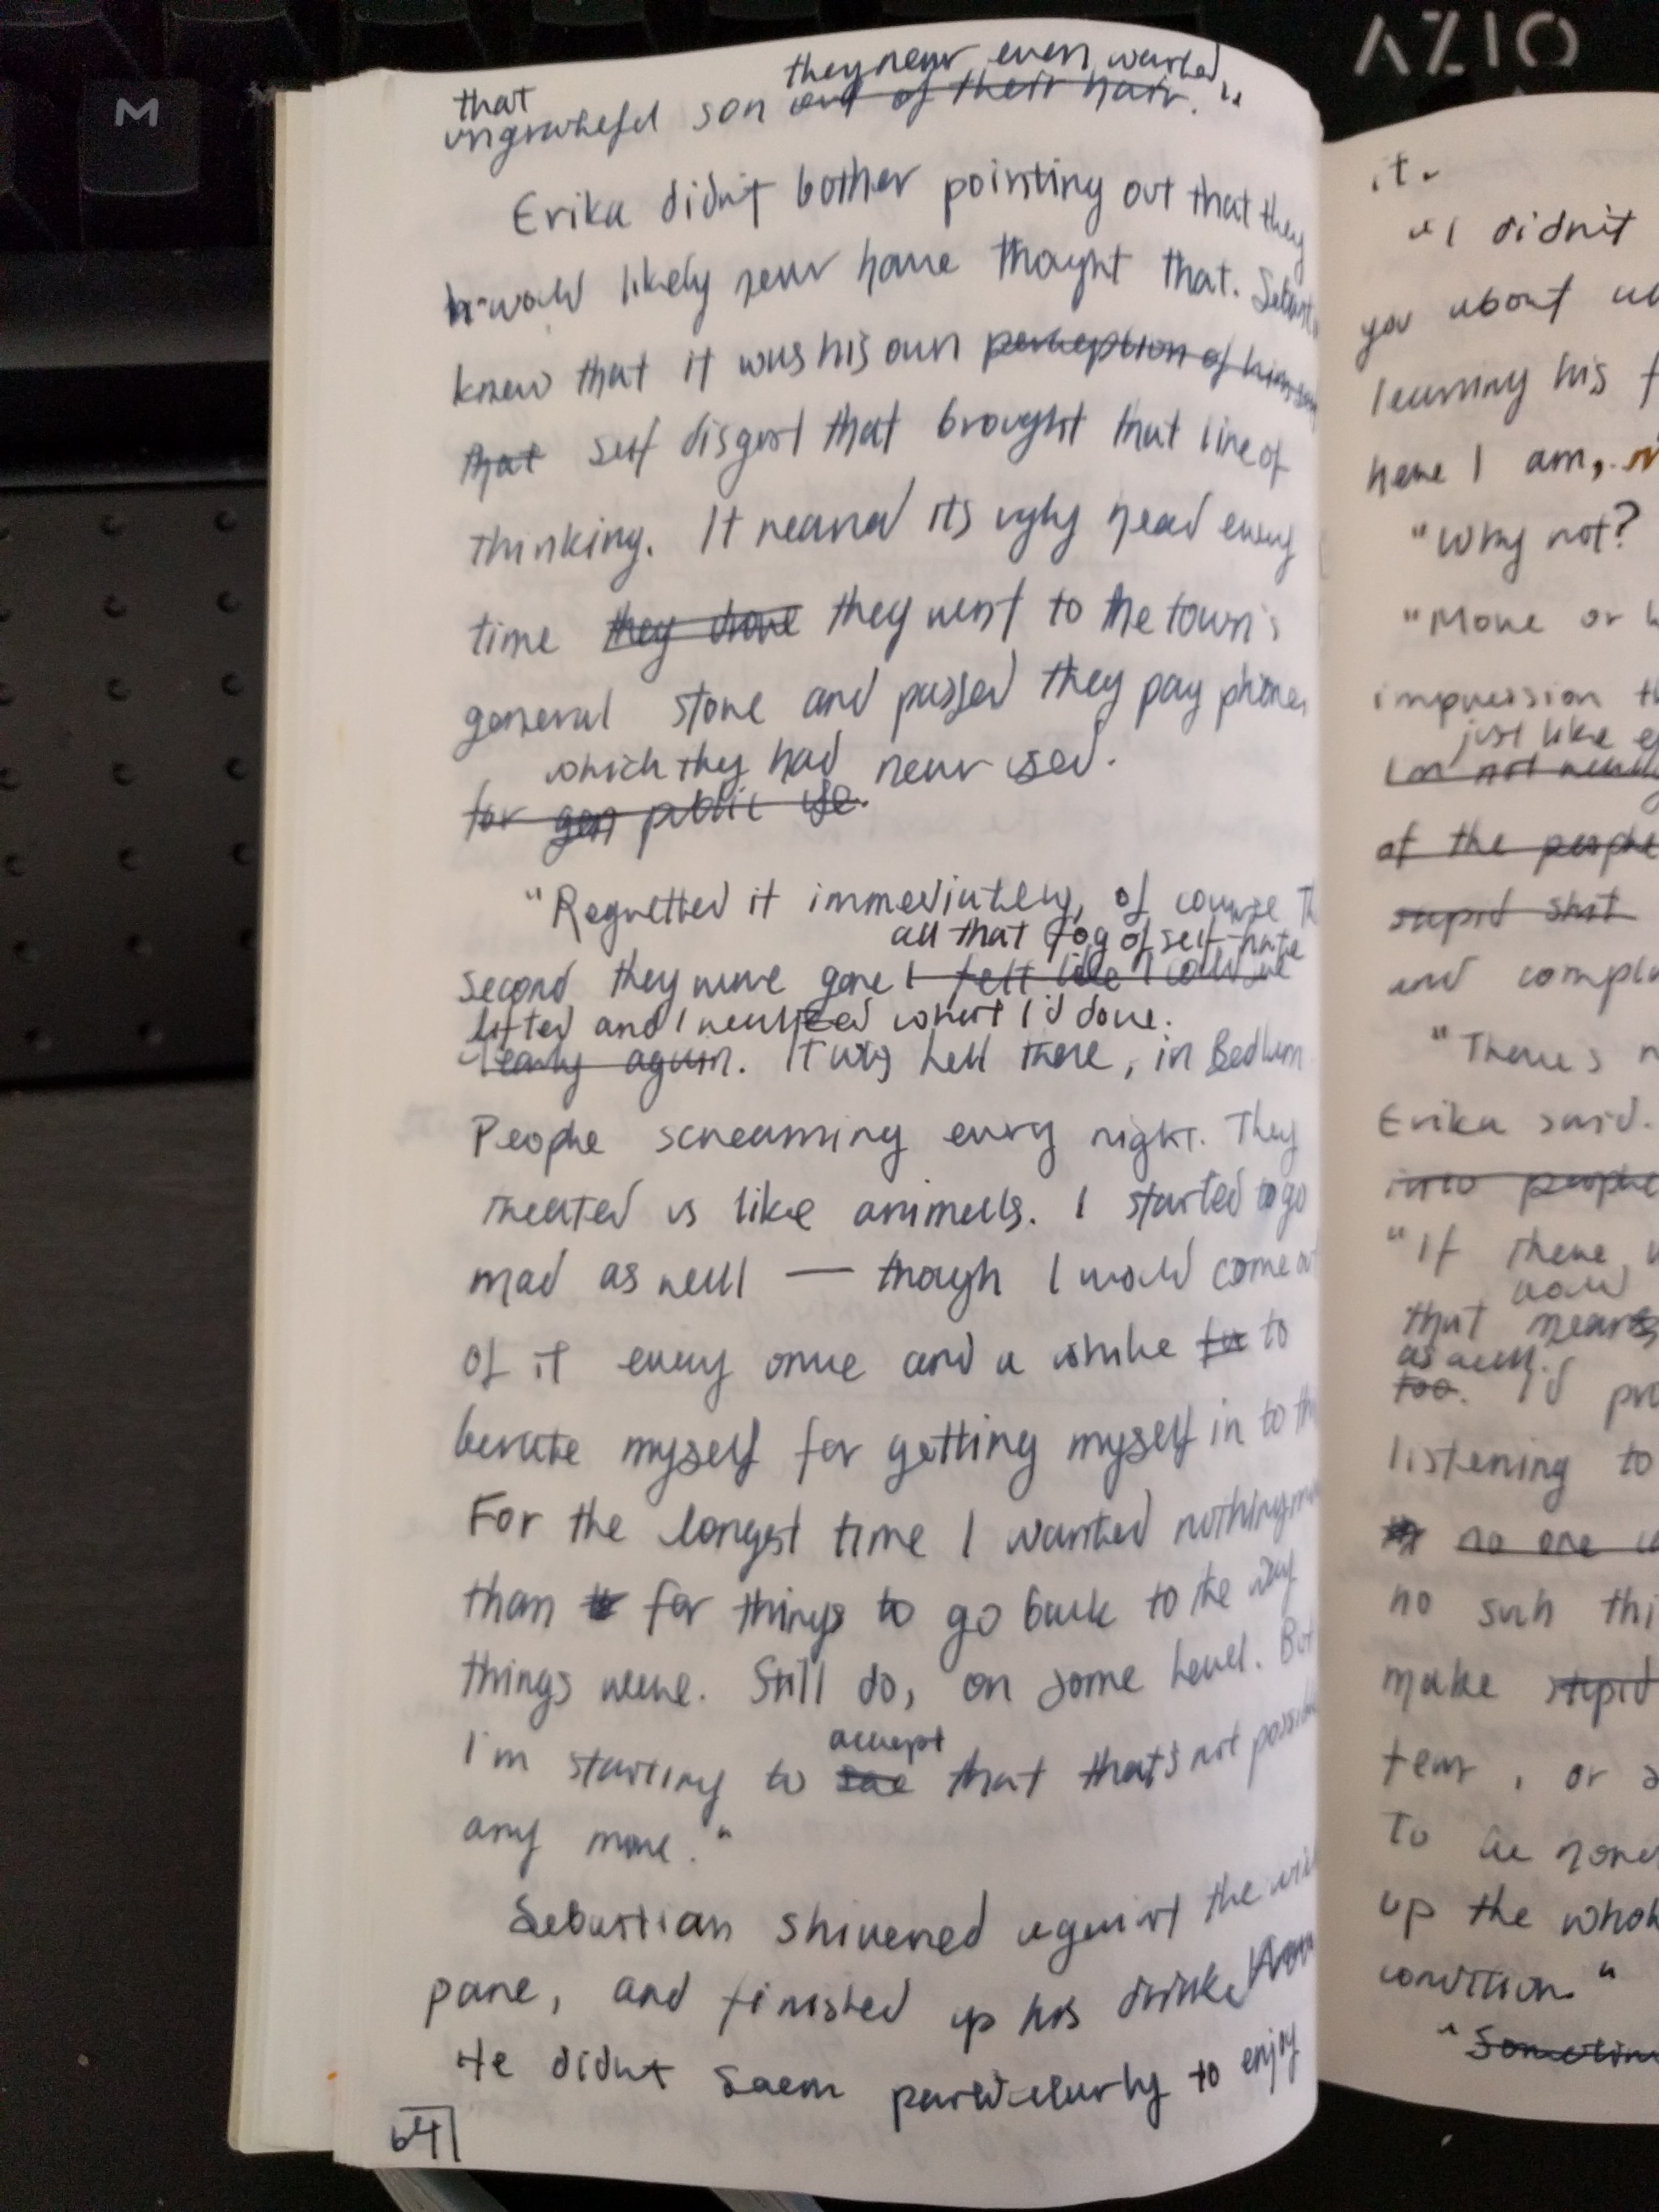 AZIO
M
they never even wanted."
that
ungrateful son out of their hair.
Erika didn't bother pointing out that they
would likely never have thought that.
knew that it was his own perception of himself
that self disgust that brought that line of
thinking. It reared its ugly head every
time they drove they went to the town's
general store and passed they pay phones
which they had never used.
for gen public use.
"Regretted it immediately, of course. Th
all that fog of self-hate
second they were gone I felt like I could see
lifted and I realized what I'd done.
clearly again. It was hell there, in Bedlam
People screaming every night. They
treated us like animells. I started to go
mad as well — though I would come ou
of it every once and a while to
berate myself for getting myself in to th
For the longest time I wanted nothing mo
than for things to go back to the way
things were. Still do, on some level. But
accept
I'm starting to see that that's not possib
any more."
Sebastian shivered against the win
pane, and finished up his drink.
He didn't seem particularly to enjoy
64
it.
"I didn't
you about
learning his f
here I am,
"Why not?
"Move or
impression th
just like e
I'm not really
of the people
stupid shit
and compl
"There's n
Erika said.
into people
"If there w
that
as well.
too. I'd pro
listening to
no one
no such thi
make stupid
tear, or
To be
up the whol
condition."
"Sometim